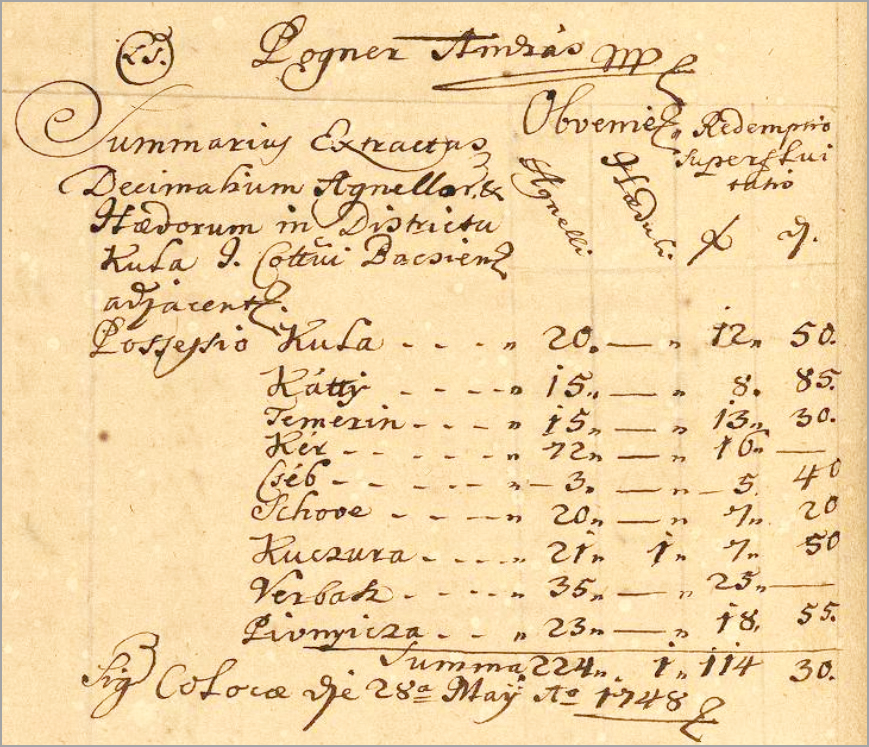 LS. Pogner András mp
Summarius Extractus
Decimalium Agnellor. &
Hædorum in Districtu
Kula I. Cottui Bacsien
adjacent.
Obvenie Redemptio
superflui
tatio
Agnelli Hæduli. f d.
Possessio Kula - - - „ 20. — „ 12„ 50.
Kátty - - - - „ 15„ — „ 8. 85.
Temerin - - - „ 15„ — „ 13„ 30.
Kér - - - - - „ 72„ — „ 16„ —
Cséb - - - - - „ - 3„ — „ - 5. 40
Schove - - - - „ 20„ — „ 7„ 20
Kuczura - - - - „ 21„ 1„ 7„ 50
Verbasz - - - - „ 35„ — „ 25„ —
Pivnyicza - - - „ 23„ — „ 18. 55.
Summa 224„ 1„ 114 30.
Sig Colocæ die 28a May Ao 1748